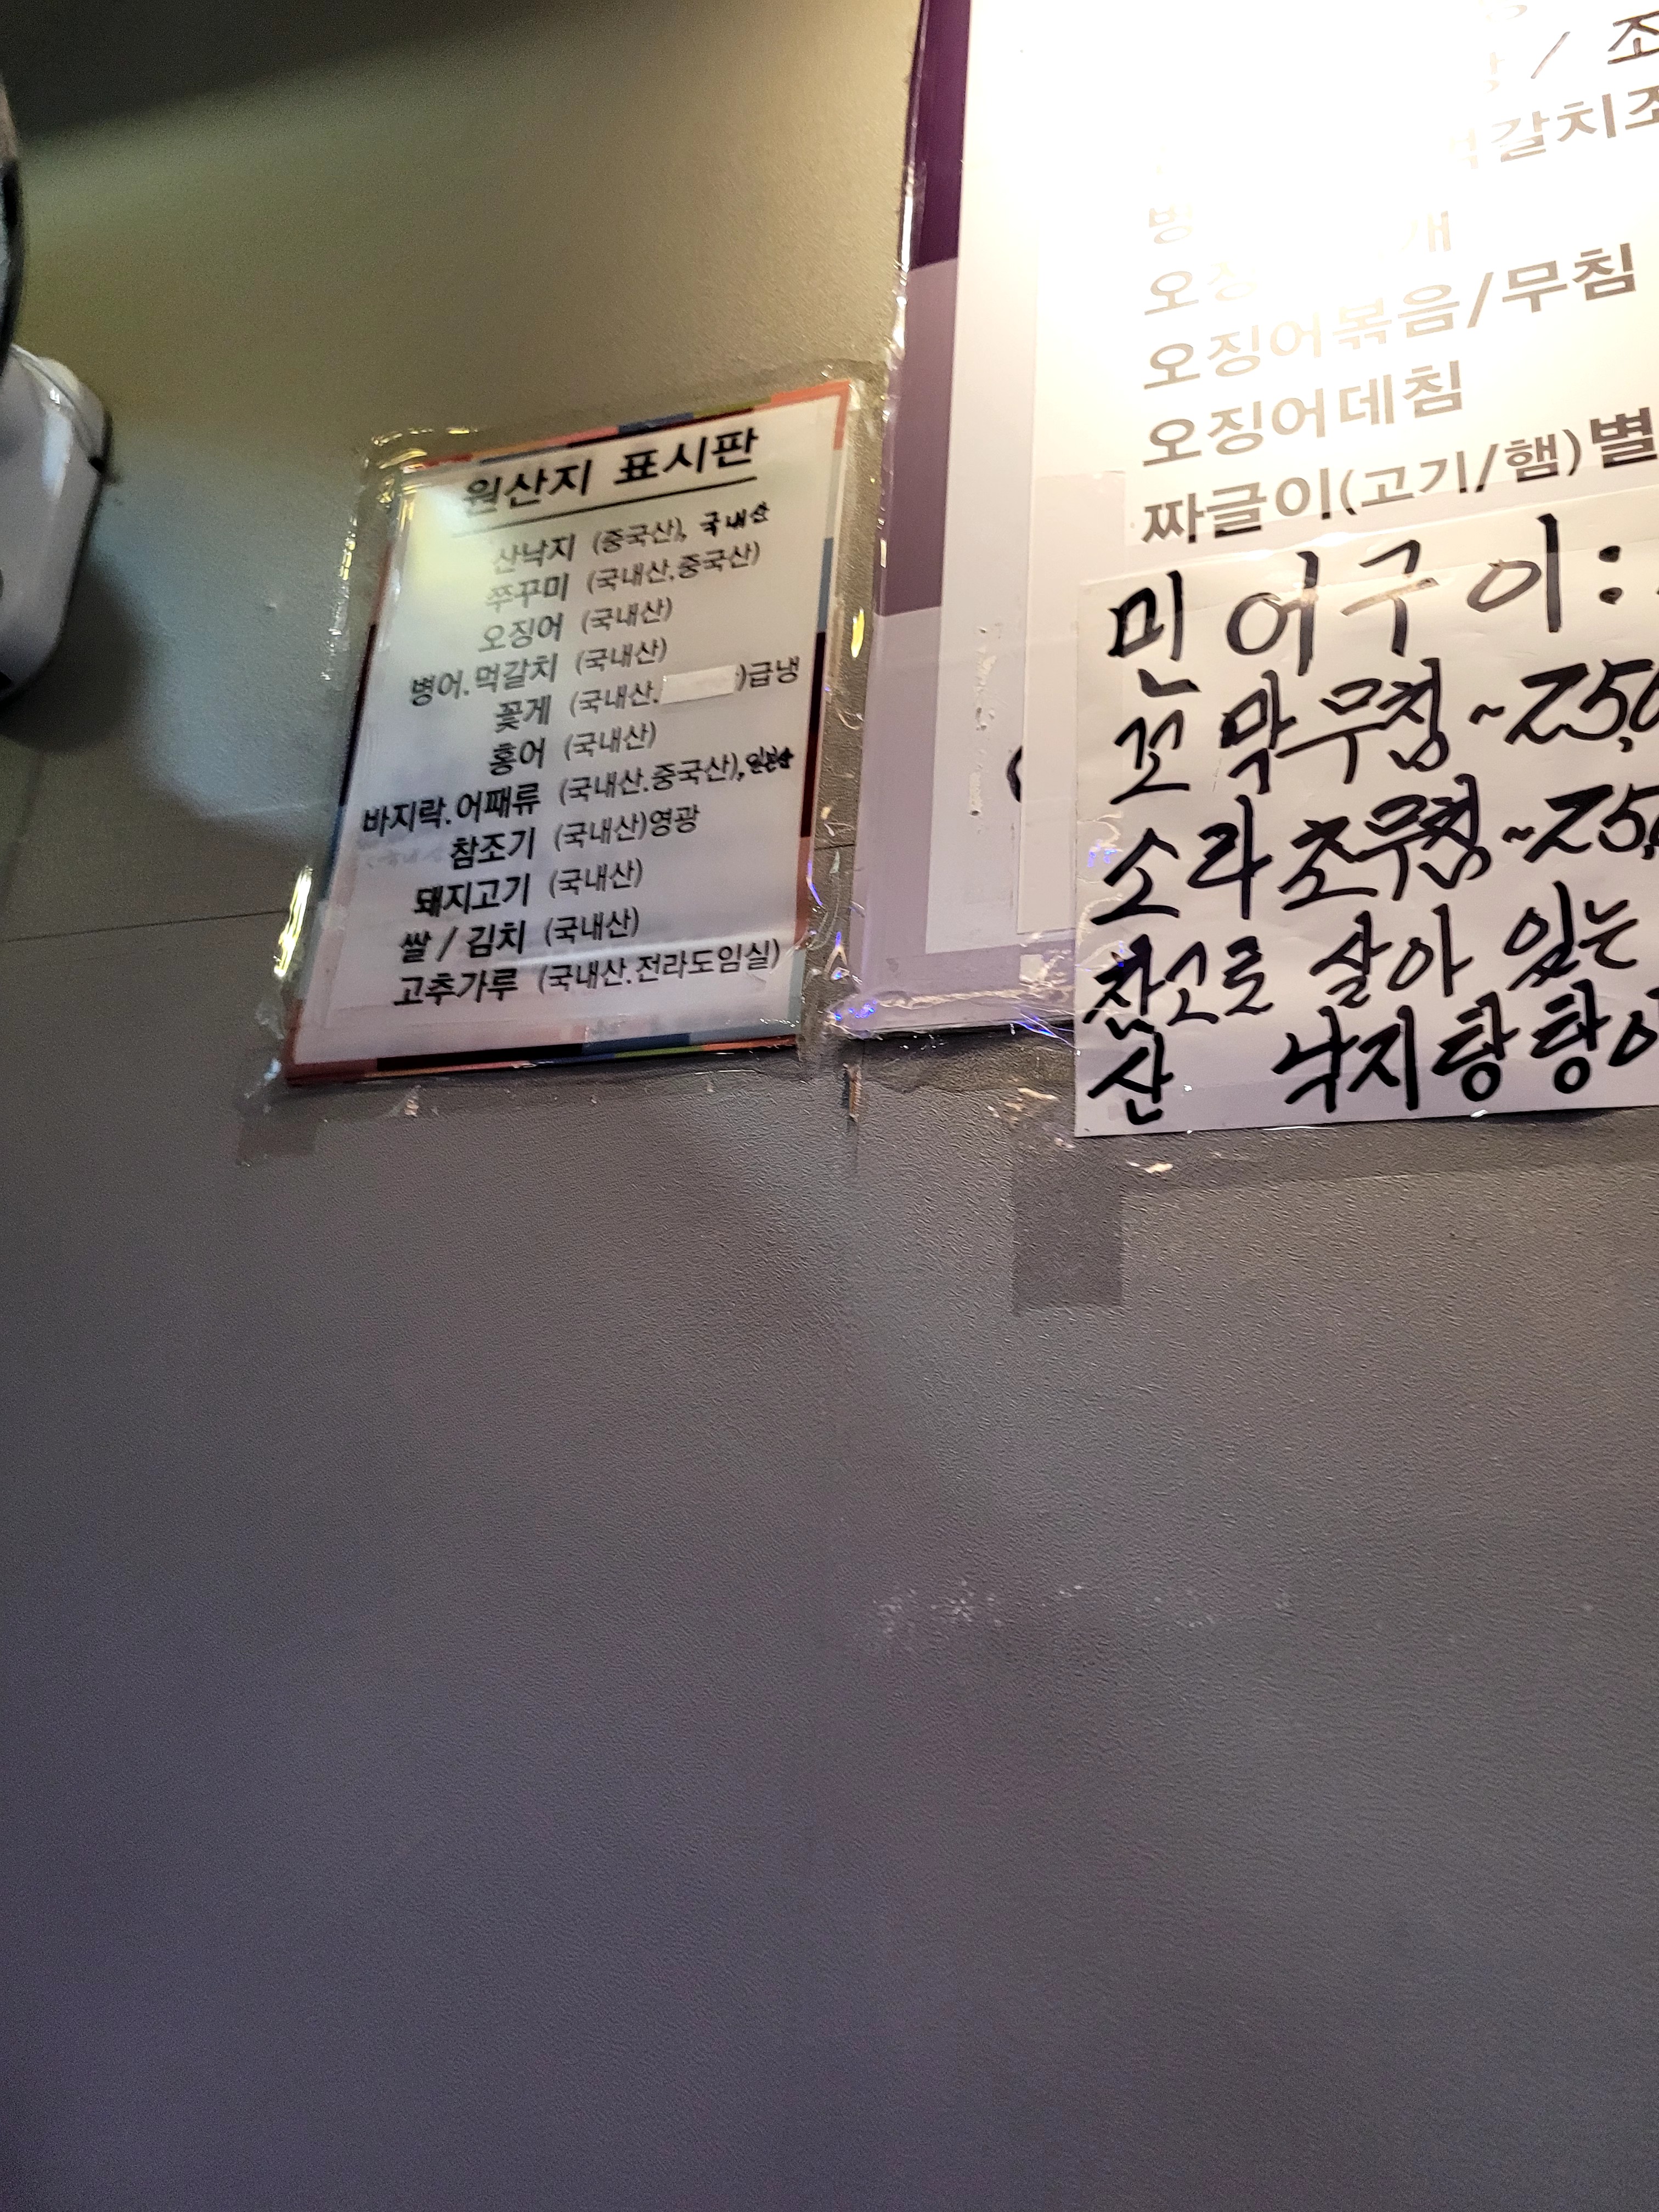 원산지 표시판
산낙지 (중국산), 국내산
쭈꾸미 (국내산,중국산)
오징어 (국내산)
병어.먹갈치 (국내산)
꽃게 (국내산. )급냉
홍어 (국내산)
바지락.어패류 (국내산.중국산),일본산
참조기 (국내산)영광
돼지고기 (국내산)
쌀 / 김치 (국내산)
고추가루 (국내산.전라도임실)
/ 조
갈치조
오징어볶음/무침
오징어데침
짜글이(고기/햄)별
민어구이:
꼬막무침~25,0
소라초무침~25,
참고로 살아 있는
산 낙지탕탕이